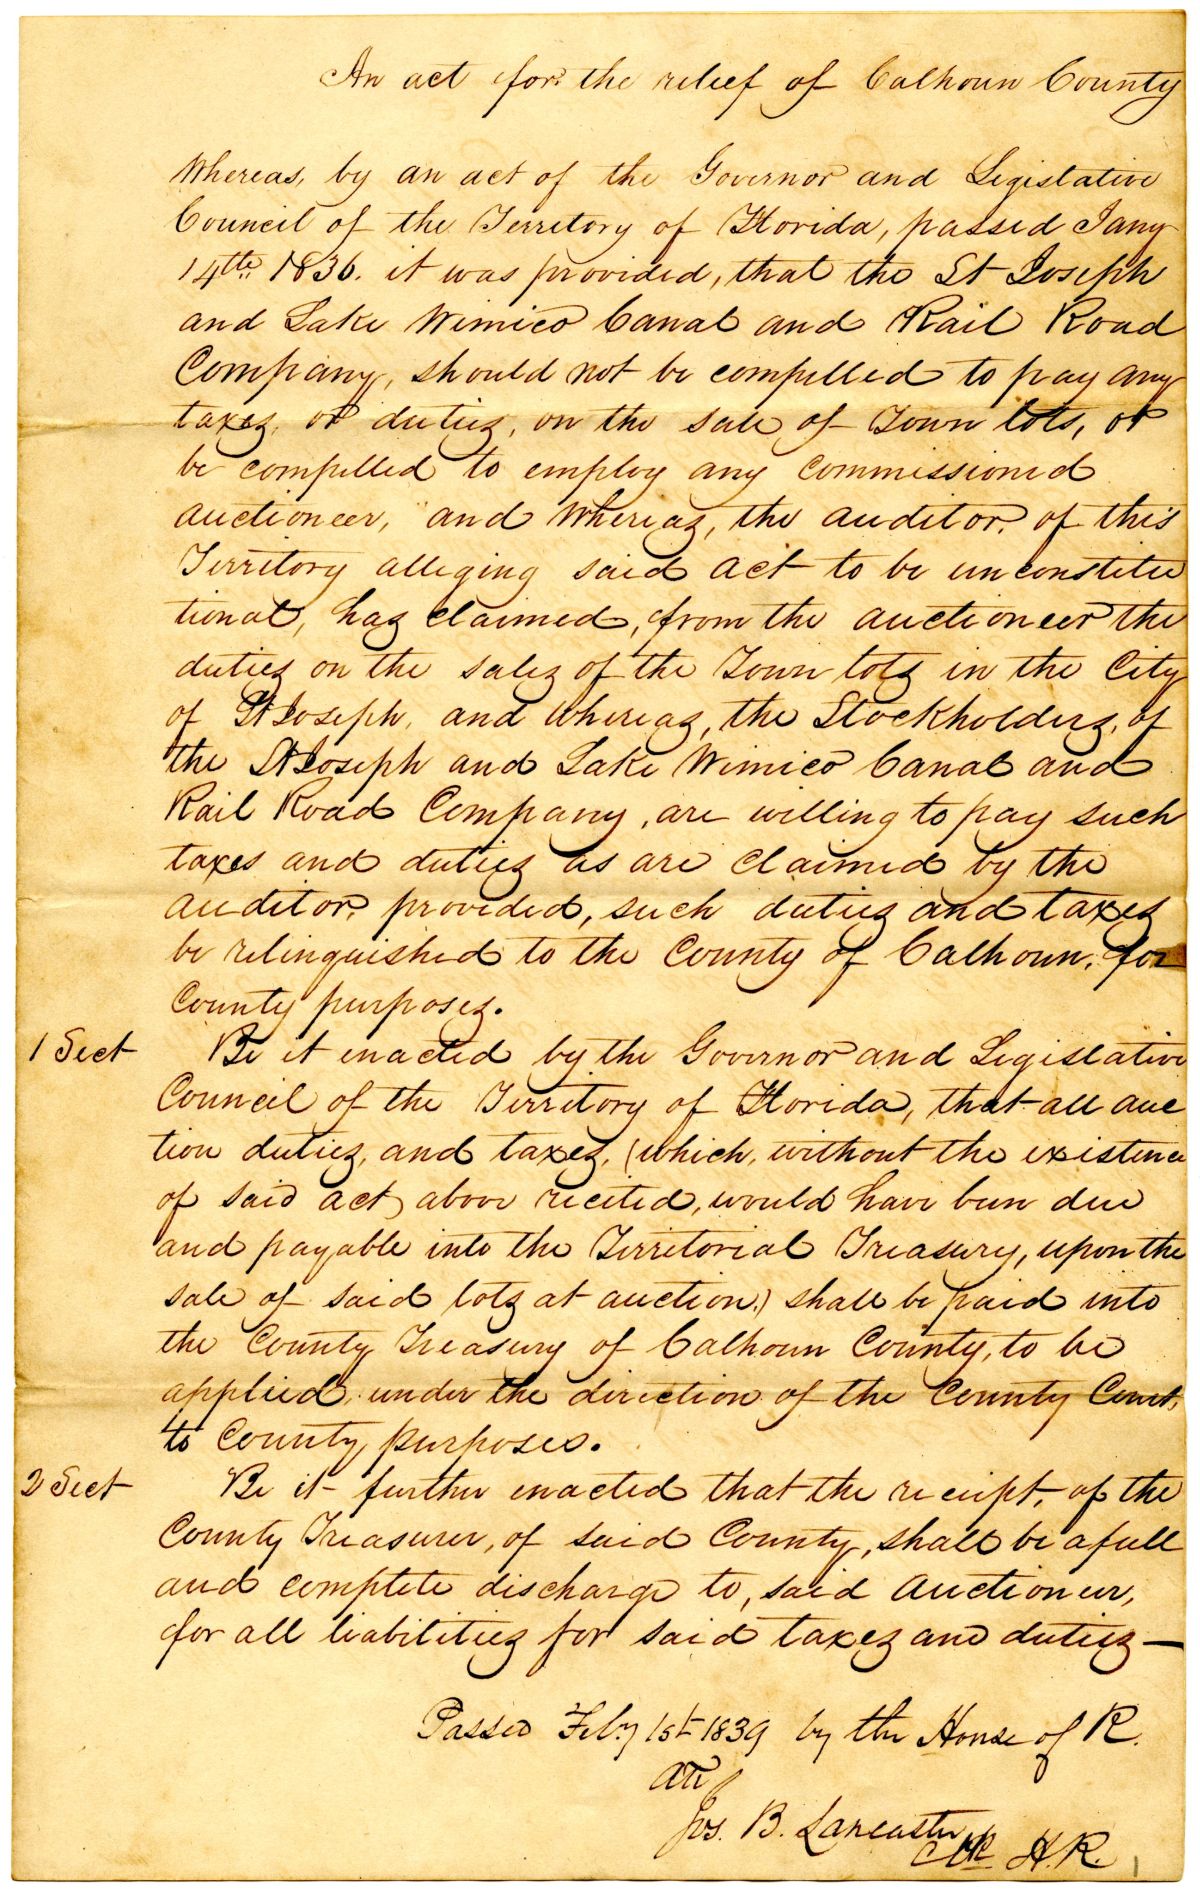 An act for the relief of Calhoun County
Whereas, by an act of the Governor and Legislative
Council of the Territory of Florida, passed Jany
14th 1836. it was provided, that the St Joseph
and Lake Wimico Canal and Rail Road
Company, should not be compelled to pay any
taxes, or duties, on the sale of Town lots, or
be compelled to employ any commissioned
auctioneer, and whereas, the auditor, of this
Territory alleging said act to be unconstitu
tional, has claimed, from the auctioneer the
duties on the sales of the Town lots in the City
of St Joseph, and whereas, the Stockholders, of
the St Joseph and Lake Wimico Canal and
Rail Road Company, are willing to pay such
taxes and duties as are claimed by the
auditor, provided, such duties and taxes
be relinquished to the County of Calhoun, for
County purposes.
1 Sect Be it enacted by the Governor and Legislative
Council of the Territory of Florida, that all auc
tion duties, and taxes, (which, without the existence
of said act, above recited, would have been due
and payable into the Territorial Treasury, upon the
sale of said lots at auction,) shall be paid into
the County Treasury of Calhoun County, to be
applied, under the direction of the County Court,
to County purposes.
2 Sect Be it further enacted that the receipt, of the
County Treasurer, of said County, shall be a full
and complete discharge to, said auctioneer,
for all liabilities for said taxes and duties —
Passed Feby 1st 1839 by the House of R.
Att
Jos. B. Lancaster
Clk H.R.